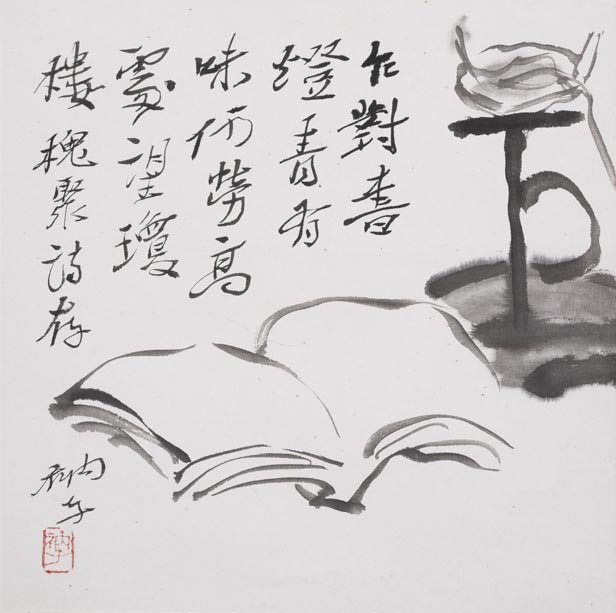 乍對書
燈青有
味何勞高
處望瓊
樓槐聚詩存
衲子